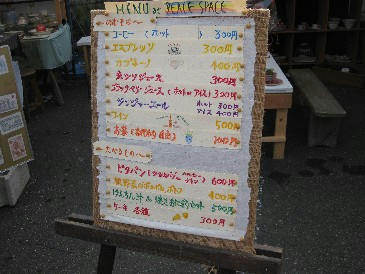 MENU at PEACE SPACE
のみもの〜
コーヒー (ホット) 300円
エスプレッソ 300円
カプチーノ 400円
赤シソジュース 300円
ブラックベリージュース (ホットorアイス) 300円
ジンジャーエール ホット 300円
アイス 400円
ワイン 500円
お茶 200円
たべもの〜
ピタパン 600円
400円
けんちん汁 & 焼きおにぎりセット 500円
ケーキ 各種 300円